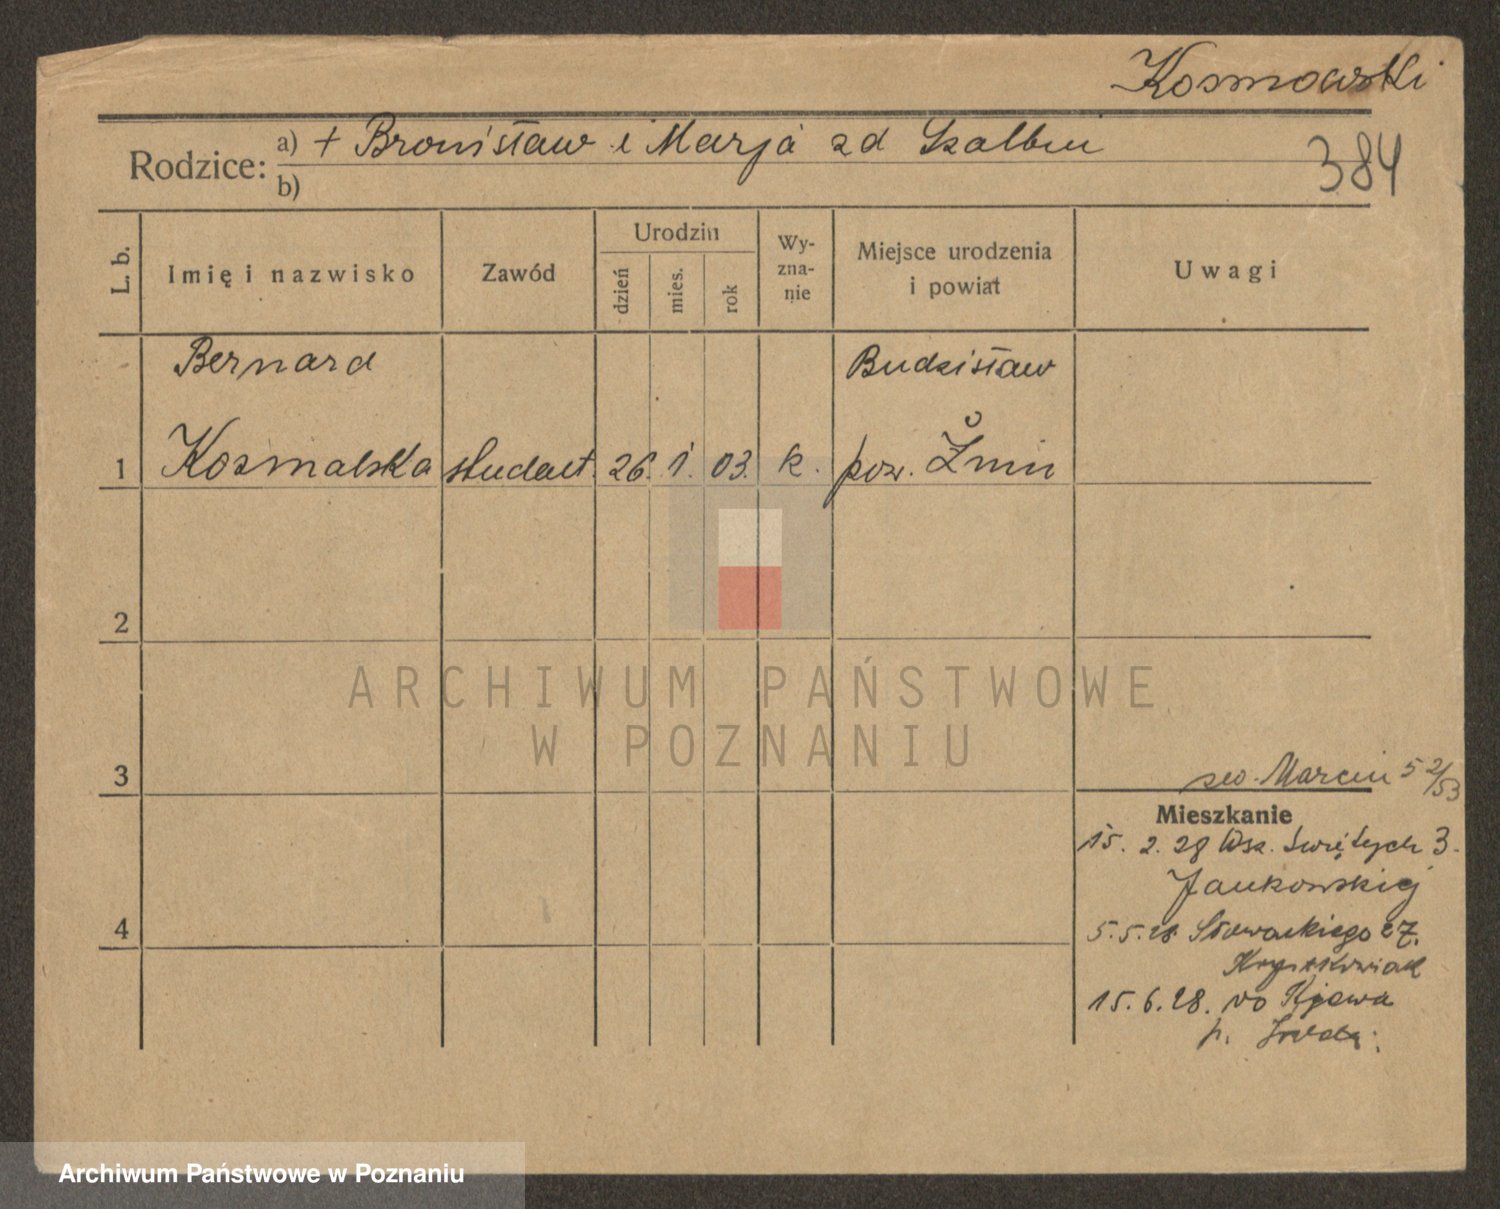 Kosmowski
Rodzice: a) + Bronisław i Marja zd Szalbin
b)
384
L. b.
Imię i nazwisko
Zawód
Urodzin
dzień
mies.
rok
Wy-
zna-
nie
Miejsce urodzenia
i powiat
Uwagi
Bernard
Budzisław
1 Kosmalska student. 26. 1. 03. k. pow. Żnin
2
ARCHIWUM PAŃSTWOWE
W POZNANIU
3
Marcin 5 2/53
Mieszkanie
15. 2. 28 Wsz. Świętych 3.
Jankowskiej
4
5.5.28 Słowackiego 27.
15.6.28. do
p.
Archiwum Państwowe w Poznaniu